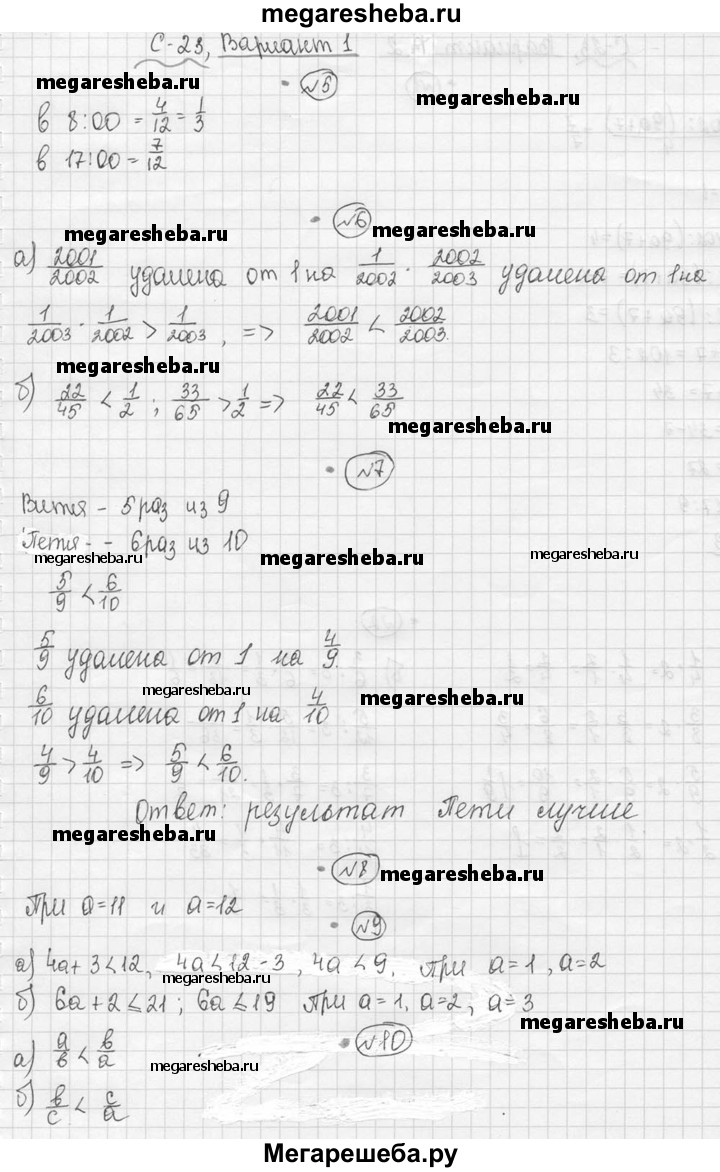 megaresheba.ru
С-23, Вариант 1
№5
megaresheba.ru megaresheba.ru
в 8:00 = 4/12 = 1/3
в 17:00 = 7/12
№6
megaresheba.ru megaresheba.ru
а) 2001/2002 удалена от 1 на 1/2002. 2002/2003 удалена от 1 на
1/2003. 1/2002 > 1/2003, => 2001/2002 < 2002/2003.
megaresheba.ru
б) 22/45 < 1/2; 33/65 > 1/2 => 22/45 < 33/65
megaresheba.ru
№7
Витя - 5 раз из 9
Петя - - 6 раз из 10
megaresheba.ru megaresheba.ru megaresheba.ru
5/9 < 6/10
5/9 удалена от 1 на 4/9.
megaresheba.ru megaresheba.ru
6/10 удалена от 1 на 4/10
4/9 > 4/10 => 5/9 < 6/10.
Ответ: результат Пети лучше
megaresheba.ru
№8
megaresheba.ru
При а=11 и а=12
№9
а) 4а+3<12, 4а<12-3, 4а<9. при а=1, а=2
megaresheba.ru
б) 6а+2⩽21; 6а⩽19 при а=1, а=2, а=3
megaresheba.ru
№10
а) а/в < в/а
megaresheba.ru megaresheba.ru
б) в/с < с/а
Мегарешеба.ру